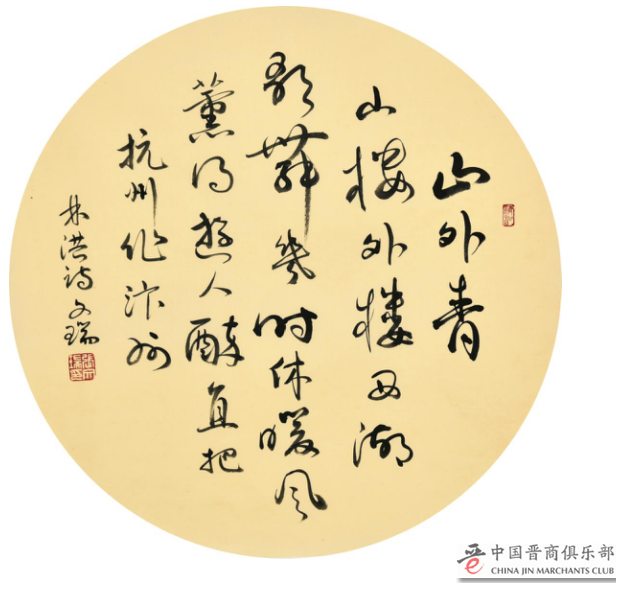 山外青
山楼外楼西湖
歌舞幾时休暖风
薰得遊人醉直把
杭州作汴州
林洪诗文瑞
晋 中国晋商俱乐部
CHINA JIN MARCHANTS CLUB